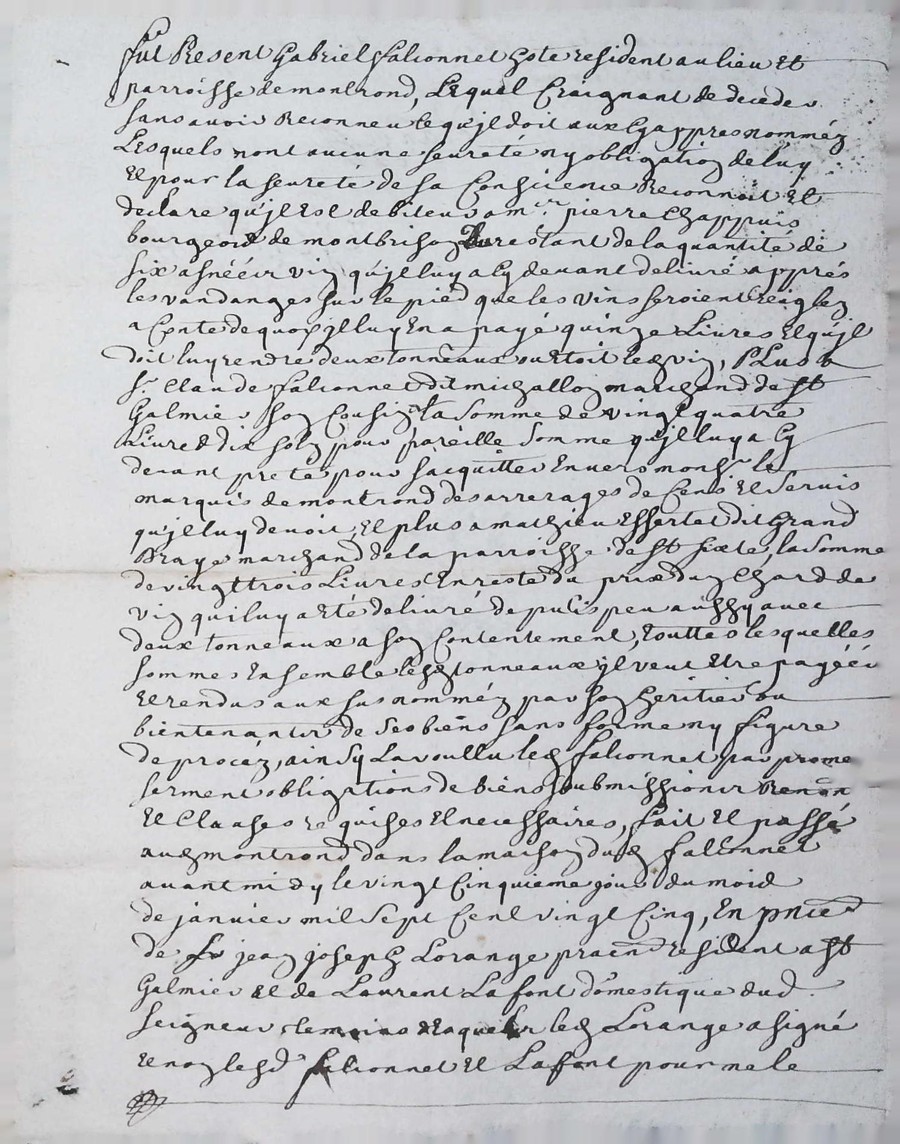 fut Present Gabriel falconnet hote resident au lieu Et
parroisse de montrond, Lequel Craignant de deceder
sans avoir Reconneu ce qu'jl doit aux Cy appres nomméz
Lesquels nont aucune seureté ny obligation de luy
Et pour la seureté de sa Conscience Reconnoit Et
declare qu'jl Est debiteur a mr. pierre Chappuis
bourgeois de montbrison du restant de la quantité de
six asnéés vin qu'jl luy a Cy devant delivré apprés
les vandanges sur le pied que les vins seroient reiglez
a Conte de quoy jl luy En a payé quinze Livres Et qu'jl
doit luy rendre deux tonneaux ou Etoit led vin, PLus a
Sr. Claude falconnet dit michallon marchand de St
Galmier son Cousin la somme de vingt quatre
Livres dix sols pour pareille somme qu'jl luy a Cy
devant preté pour sacquitter Envers monsr. le
marquis de montrond des arrerages de Cens Et servis
qu'jl luy devoit, Et plus a mathieu Essertel dit Grand
Braye marchand de la parroisse de St sixte, la somme
de vingt trois Livres En reste du prix dun Chard de
vin qui luy a Eté delivré depuis peu aussy avec
deux tonneaux a son Contentement, touttes lesquelles
sommes Ensemble lesd tonneaux jl veut Etre payéés
Et rendus aux susnomméz par son heritier ou
bientenants de ses biens sans forme ny figure
de procéz, ainsy La voullu led falconnet par prome
serment obligations de biens soubmissions Renon
Et Clauses requises Et necessaires, fait Et passé
aud montrond dans la maison dud falconnet
avant midy le vingt Cinquieme jour du mois
de janvier mil sept Cent vingt Cinq, En pnce
de Sr jean joseph Lorange praen resident a St
Galmier Et de Laurent Lafont domestique dud.
seigneur temoins led Lorange a signé
Et non lesd falconnet Et Lafont pour ne le